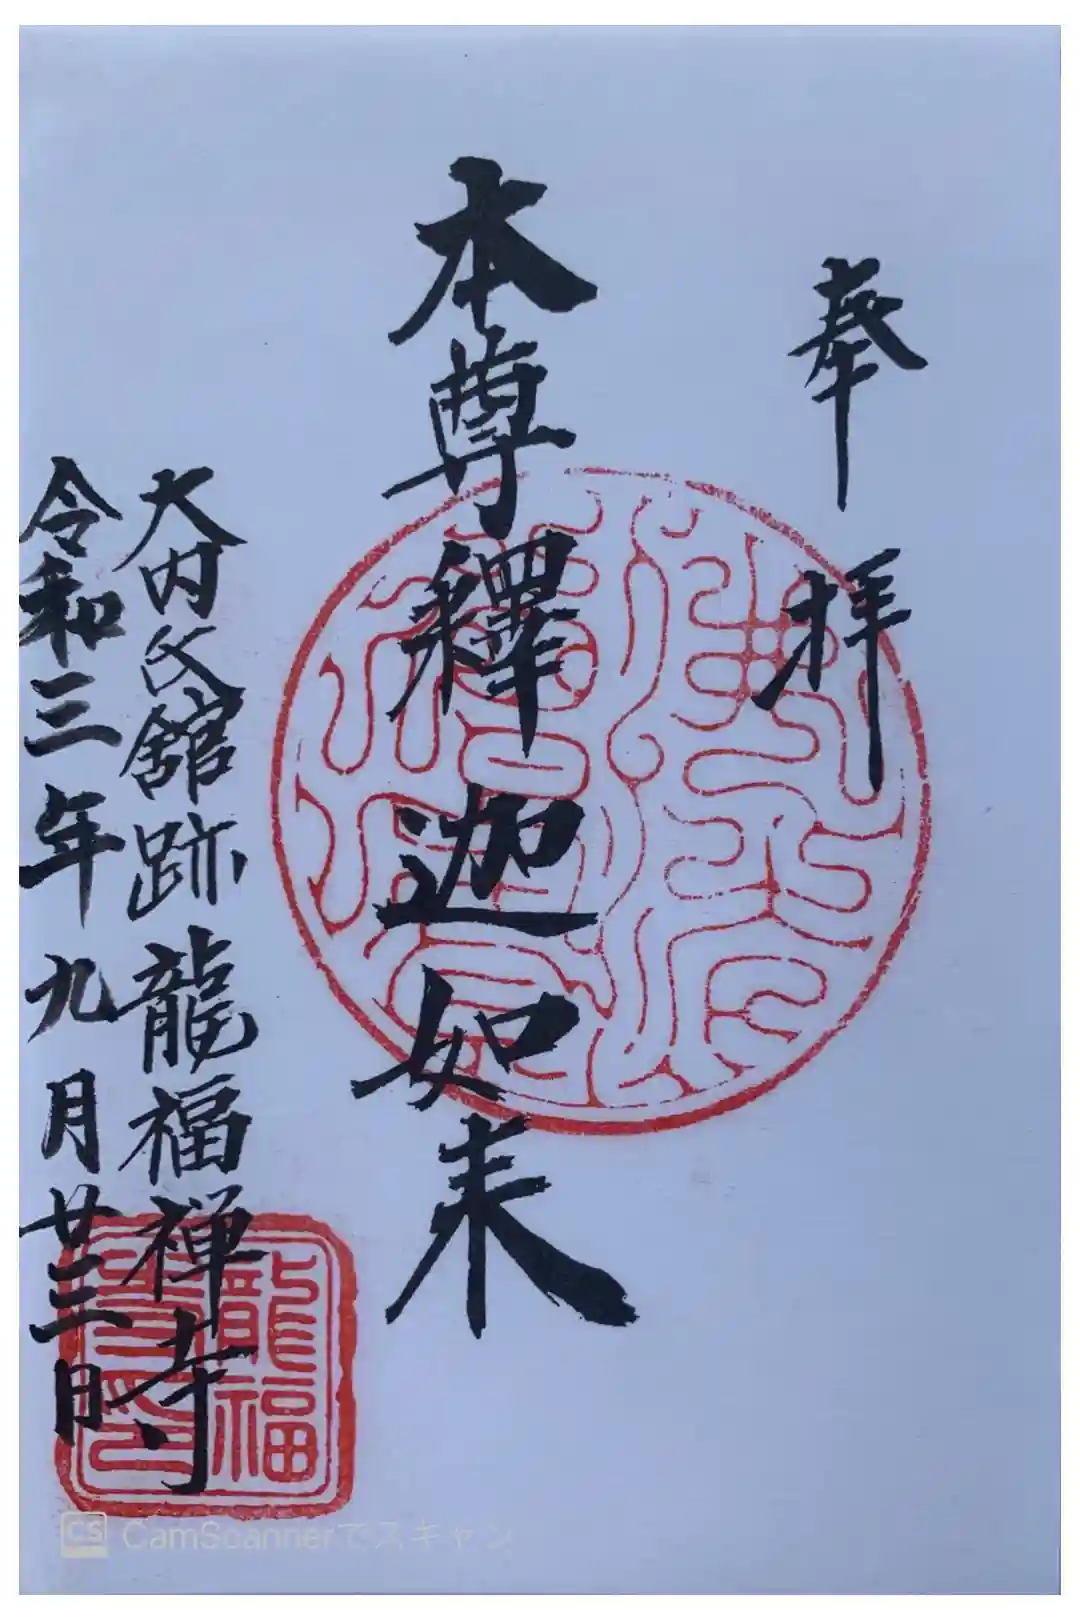 奉拝
本尊釋迦如来
大内氏舘跡龍福禅寺
令和三年九月廿三日
龍福
CS CamScannerでスキャン